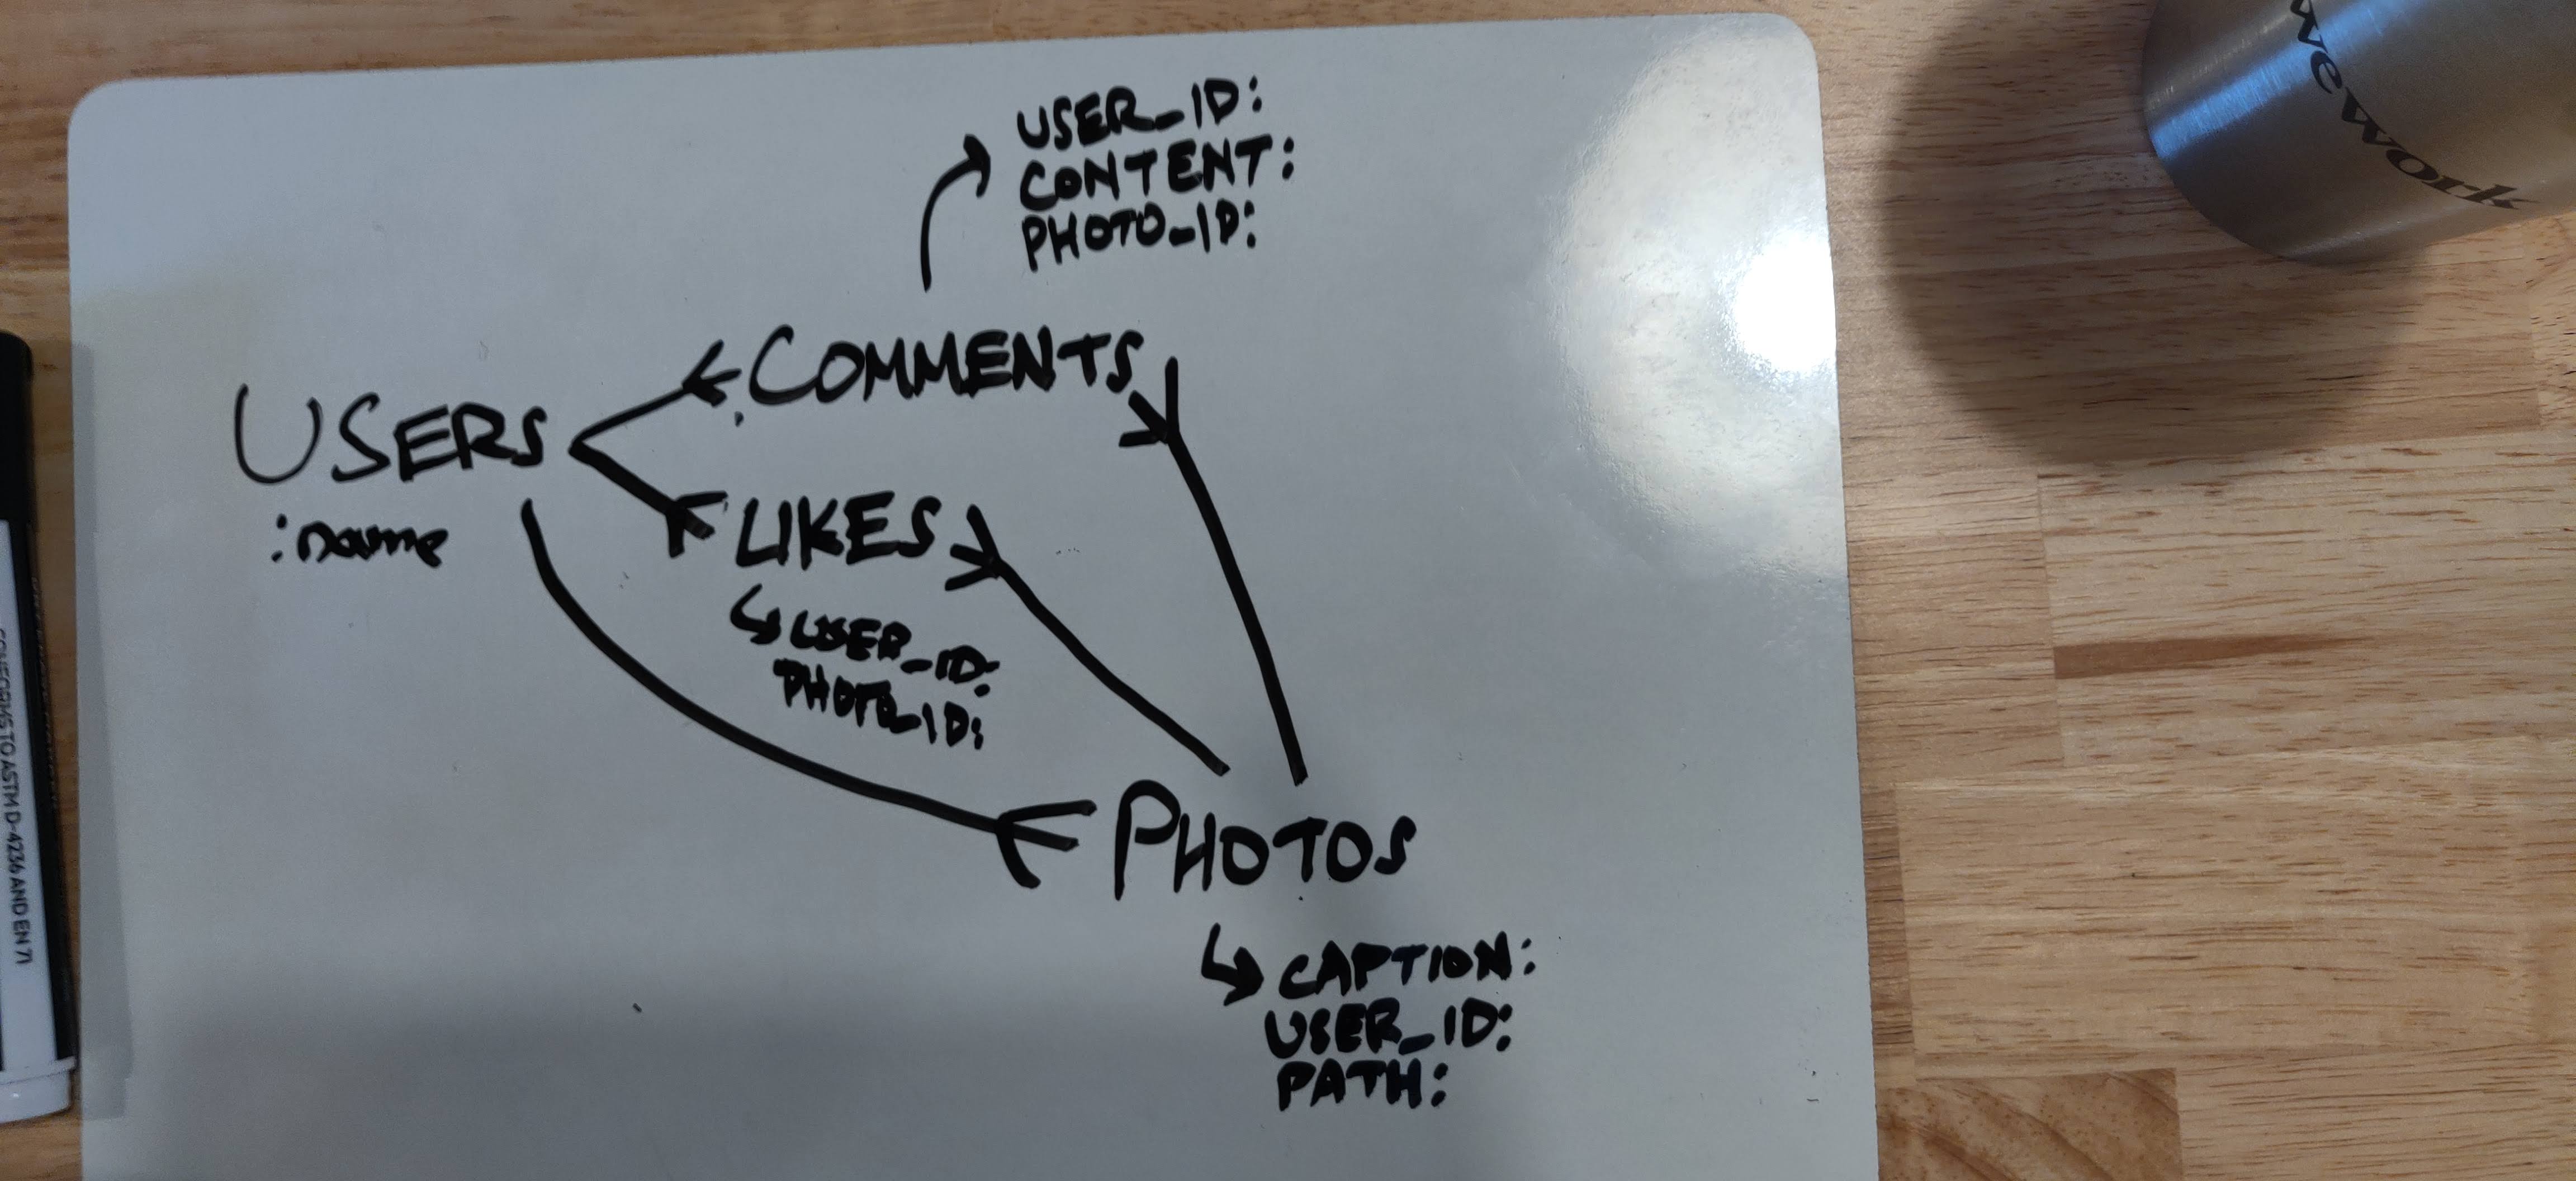 USER_ID:
CONTENT:
PHOTO_ID:
COMMENTS
USERS
:name
LIKES
USER_ID:
PHOTO_ID:
PHOTOS
CAPTION:
USER_ID:
PATH:
wework
CONFORMS TO ASTM D-4236 AND EN 71